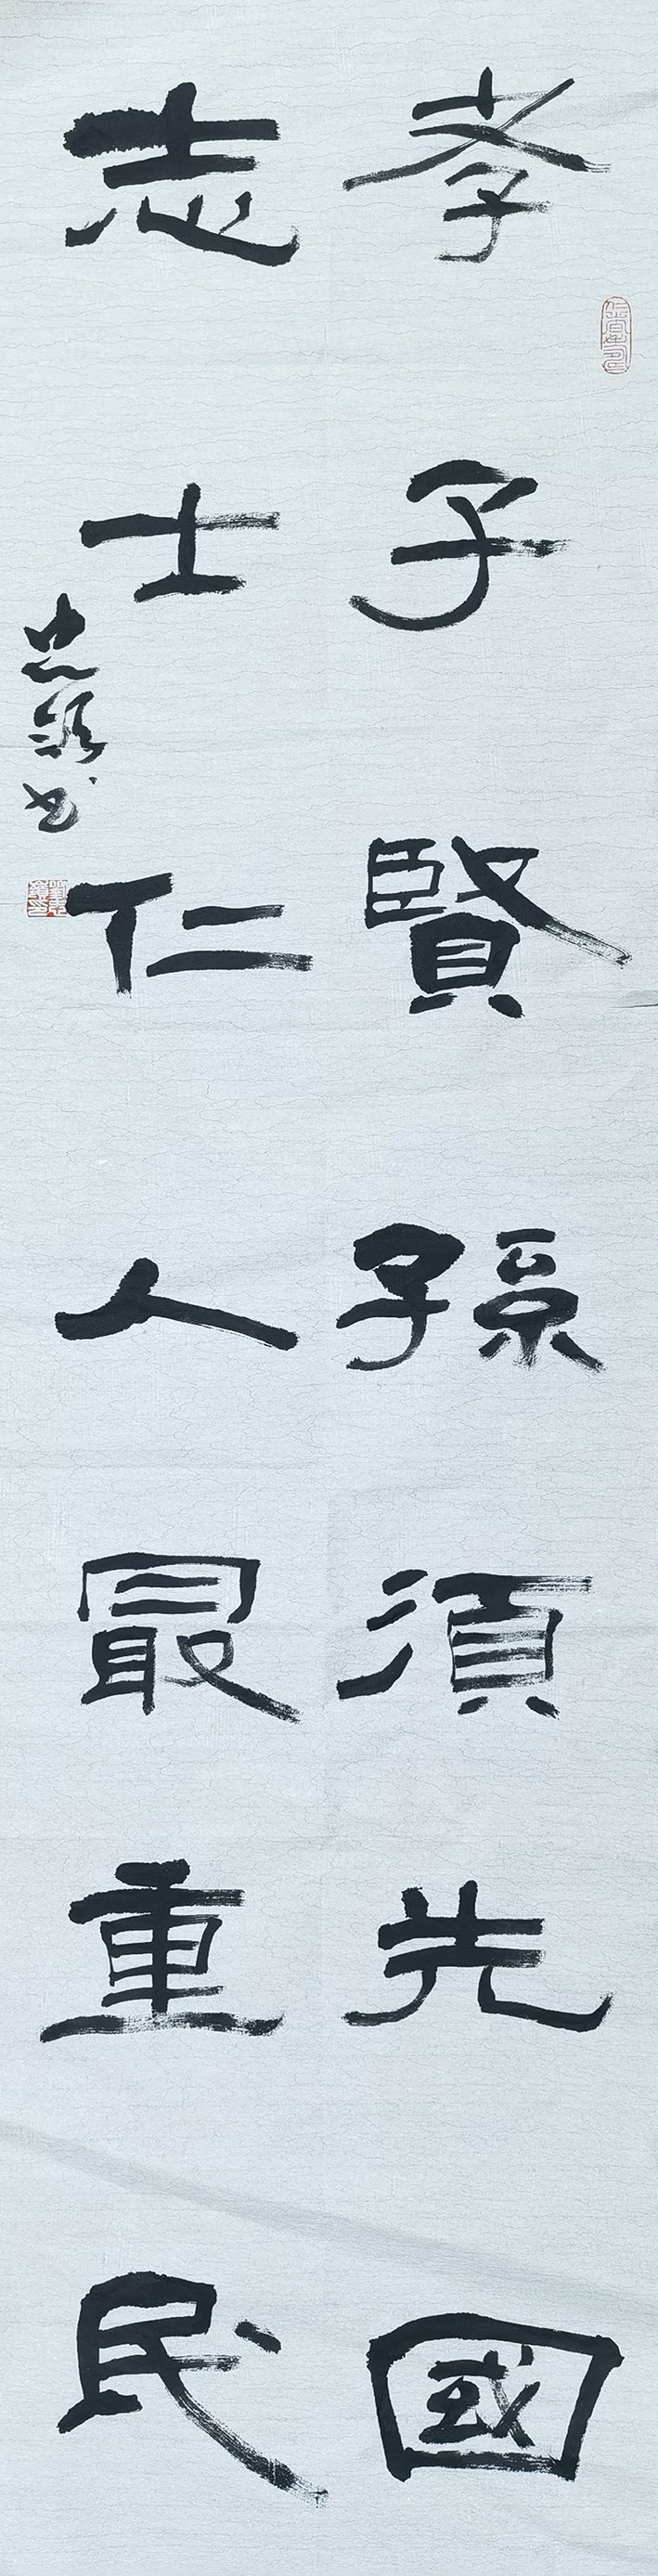 孝子賢孫須先國
志士仁人最重民